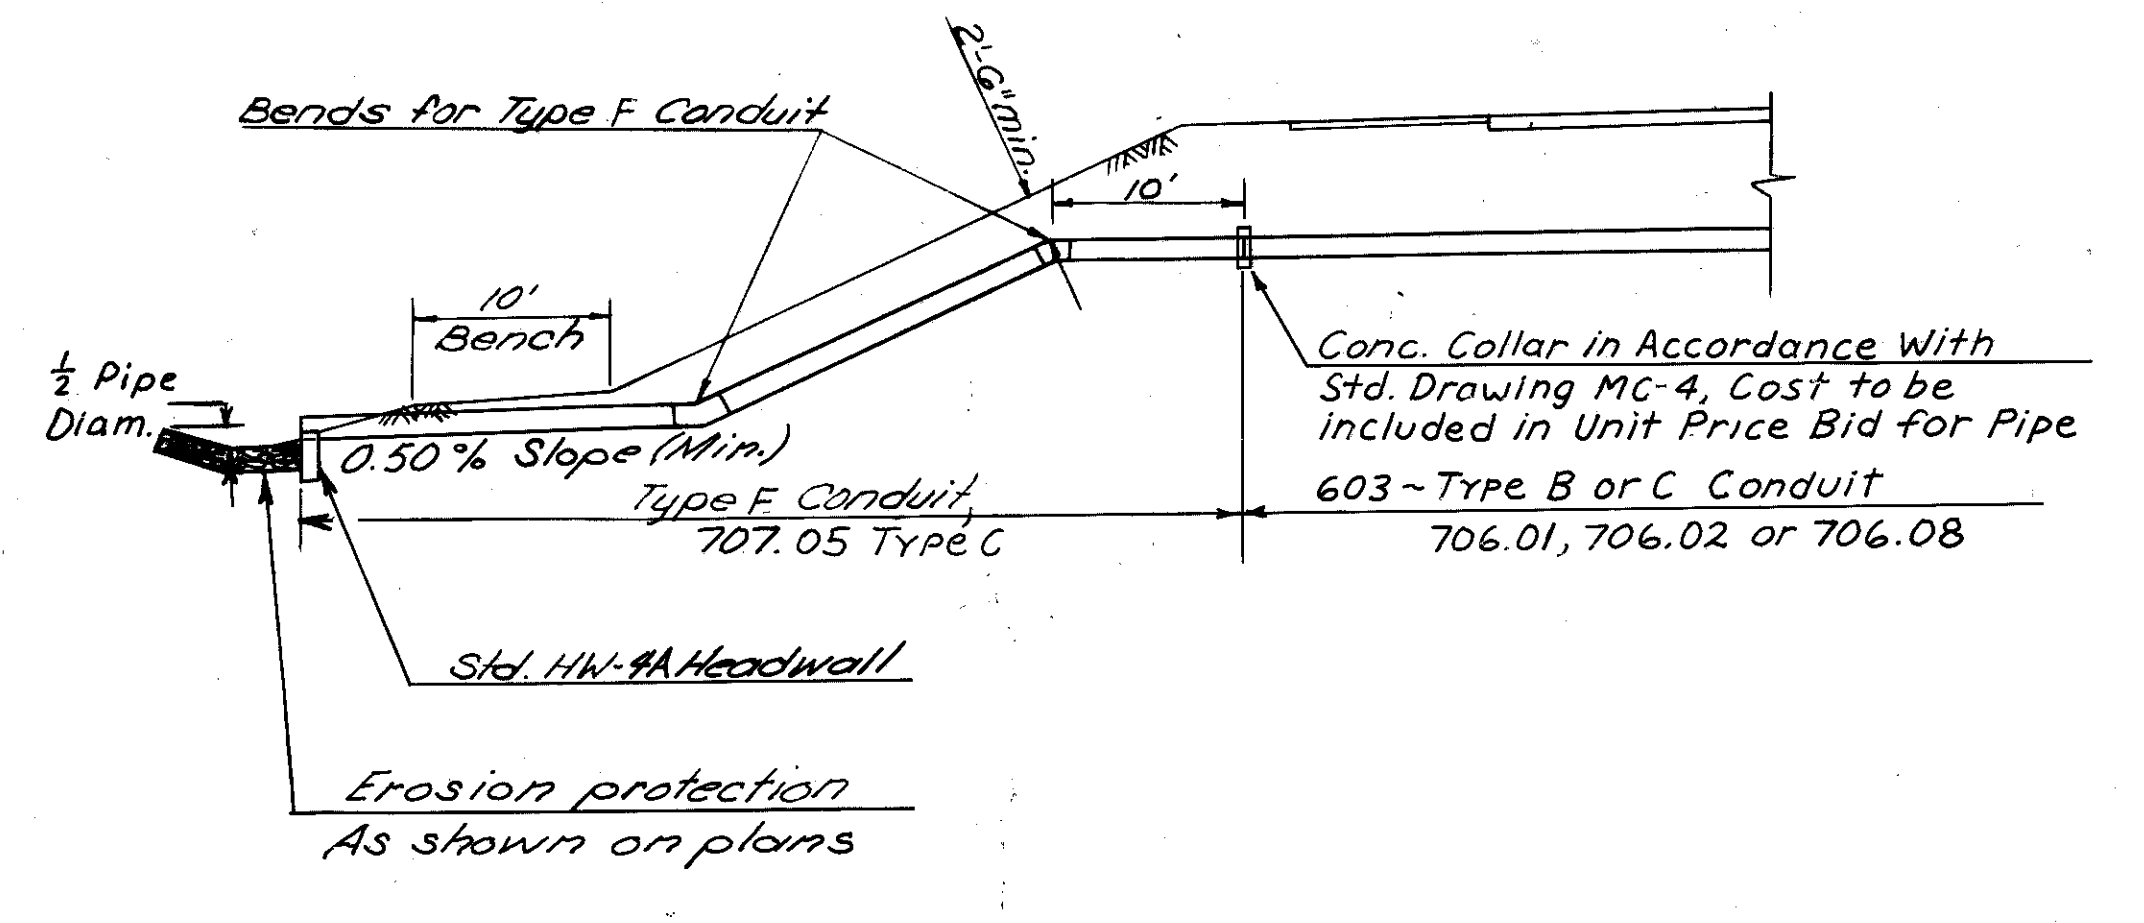 2'-6" min.
Bends for Type F Conduit
10'
10'
Bench
1/2 Pipe
Diam.
0.50% Slope (Min.)
Conc. Collar in Accordance With
Std. Drawing MC-4, Cost to be
included in Unit Price Bid for Pipe
Type F Conduit,
707.05 Type C
603~Type B or C Conduit
706.01, 706.02 or 706.08
Std. HW-4A Headwall
Erosion protection
As shown on plans